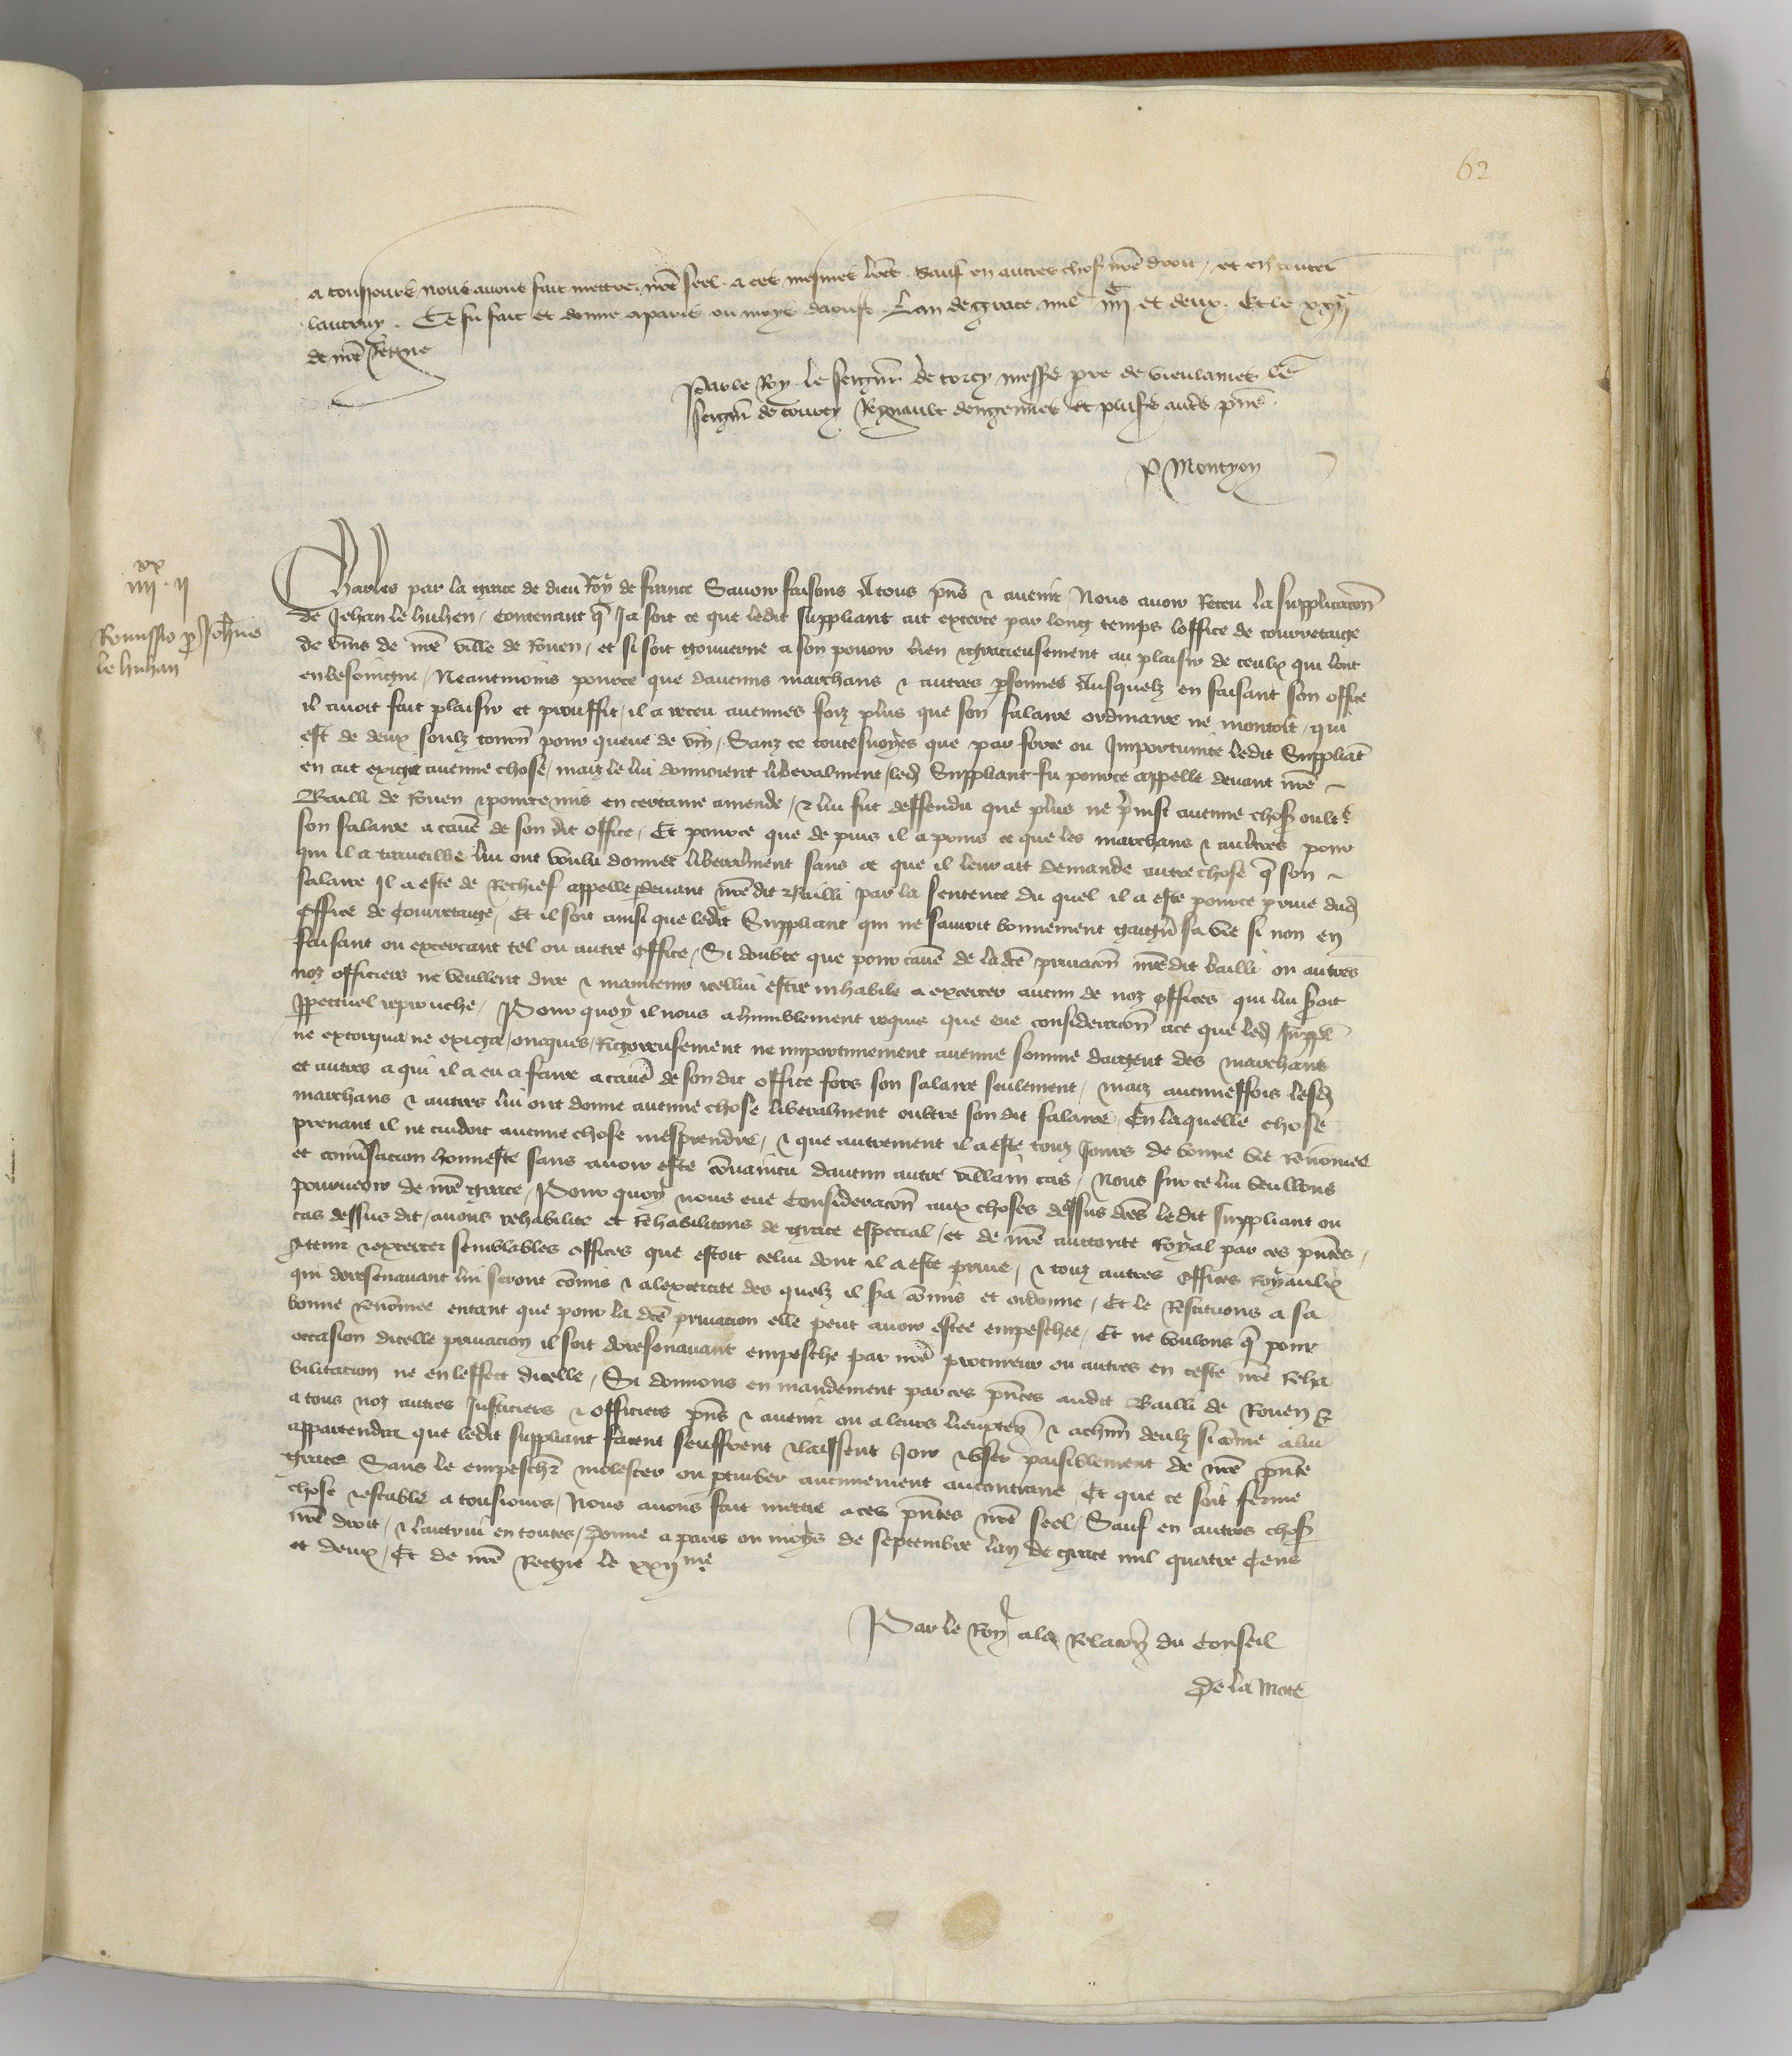 62
a tousjours nous avons fait mettre nre seel a ces mesmes lres Sauf en autres choses nre droit et en toutes
lautruy. Ce fu fait et donne a paris ou moys daoust Lan de grace mil iiijc et deux. Et le xxije
de nre regne
Par le Roy le seignr de torcy messe pre de
seignr de courcy Regnault dengennes et plusrs autrs pns.
P Montyon
iiijxx ij
Remissio p Johne
le huhan
Charles par la grace de dieu Roy de france Savoir faisons A tous pns & avenir Nous avoir Receu la supplicacon
de Jehan le huhen, contenant q Ja soit ce que ledit suppliant ait exerce par long temps loffice de courretaige
de vins de nre ville de Rouen, et si soit gouverne a son povoir bien & gracieusement au plaisir de ceulx qui lont
enbesoingne, Neantmoins pource que daucuns marchans & autres psonnes Ausquelz en faisant son office
il avoit fait plaisir et prouffit, il a receu aucunes foiz plus que son salaire ordinaire ne montoit, qui
est de deux soulz tourn pour queue de vin, Sanz ce toutesvoyes que par force ou Importunite ledit Suppliat
en ait exige aucune chose, maiz le lui donnoient liberalment, led Suppliant fu pource appelle devant nre
Bailli de Rouen & pource mis en certaine amende, & lui fut deffendu que plus ne preinst aucune chose oultre
son salaire a cause de son dit office, Et pource que depuis il a prins ce que les marchans & aultres pour
qui il a traveillie lui ont voulu donner liberalment sans ce que il leur ait demande autre chose q son
salaire Il a este de Rechief appelle devant nre dit Bailli par la sentence du quel il a este pource prive dud
Office de Courretaige, Et il soit ainsi que ledit Suppliant qui ne sauroit bonnement gaigner sa vie si non en
faisant ou excercant tel ou autre office, Si doubte que pour cause de ladce privacon nre dit bailli ou autres
noz officiers ne veullent dire & maintenir icellui estre inhabile a excercer aucun de noz offices qui lui seroit
ppetuel reprouche, Pour quoy il nous a humblement requis que eue consideracon a ce que led suppl
ne extorqua ne exiga oncques Rigoreusement ne importunement aucune somme dargent des marchans
et autres a qui il a eu a faire a cause de son dit office fors son salaire seulement, maiz aucuneffois lesd
marchans & autres lui ont donne aucune chose liberalment oultre son dit salaire En laquelle chose
prenant il ne cuidoit aucune chose mesprendre, & que autrement il a este touz Jours de bonne vie Renommee
et conversacion honneste sans avoir este convaincu daucun autre villain cas, Nous sur ce lui veullons
pourveoir de nre grace, Pour quoy nous eue Consideracon aux choses dessus dces ledit suppliant ou
cas dessus dit, avons rehabilite et Rehabilitons de grace especial, et de nre auctorite Royal par ces pntes,
A tenir & excercer semblables offices que estoit celui dont il a este prive, & touz autres offices Royaulx
qui doresenavant lui seront comis & a lexercite des quelz il sera comis et ordonne, Et le Restituons a sa
bonne Renommee entant que pour la dce privacion elle peut avoir estee empeschee, Et ne voulons q pour
occasion dicelle privacion il soit doresenavant empesche par nre procureur ou autres en ceste nre Reha
bilitacion ne en leffect dicelle, Si donnons en mandement par ces pntes audit Bailli de Rouen &
a tous noz autres Justiciers & officiers pns & avenir ou a leurs lieuxten & a chun deulz si come a lui
appartendra que ledit suppliant facent seuffrent & laissent Joir & user paisiblement de nre pnte
grace Sans le empescher molester ou ptuber aucunement au contraire, Et que ce soit ferme
chose & estable a tousiours, Nous avons fait mettre a ces pntes nre seel, Sauf en autres choses
nre droit, & lautrui en toutes, Donne a paris ou moys de septembre lan de grace mil quatre Cens
et deux, Et de nre Regne le xxijme.
Par le Roy a la Relacon du Conseil
De la Mote